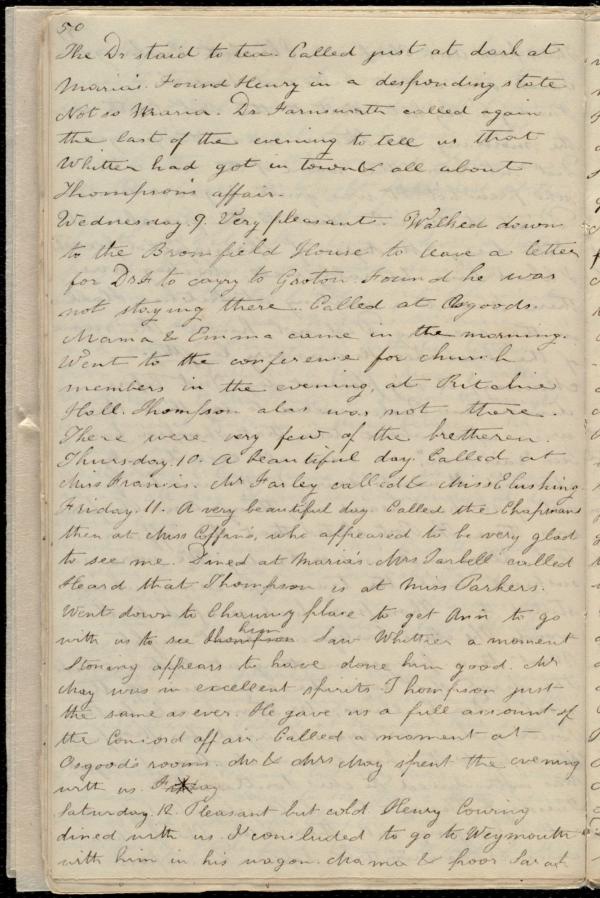 50
The Dr staid to tea. Called just at dark at
Maria's. Found Henry in a desponding state
Not so Maria. Dr Farnsworth called again
the last of the evening to tell us that
Whittier had got in town & all about
Thompson's affair.
Wednesday. 9. Very pleasant. Walked down
to the Bromfield House to leave a letter
for Dr F to carry to Groton. Found he was
not staying there. Called at Osgoods.
Mama & Emma came in the morning.
Went to the conference for church
members in the evening, at Ritchie
Hall. Thompson alas was not there.
There were very few of the bretheren.
Thursday. 10. A beautiful day. Called at
Miss Francis. Mr Farley called & Miss E Cushing.
Friday. 11. A very beautiful day. Called the Chapmans
then at Miss Coffins, who appeared to be very glad
to see me. Dined at Maria's. Mrs Tarbell called
Heard that Thompson is at Miss Parkers.
Went down to Chauncy place to get Ann to go
with us to see Thompson him Saw Whittier a moment
Stoning appears to have done him good. Mr
May was in excellent spirits Thompson just
the same as ever. He gave us a full account of
the Concord affair. Called a moment at
Osgood's rooms. Mr & Mrs May spent the evening
with us.
Saturday. 12. Pleasant but cold Henry Cowing
dined with us. I concluded to go to Weymouth
with him in his wagon. Mama & poor Sarah